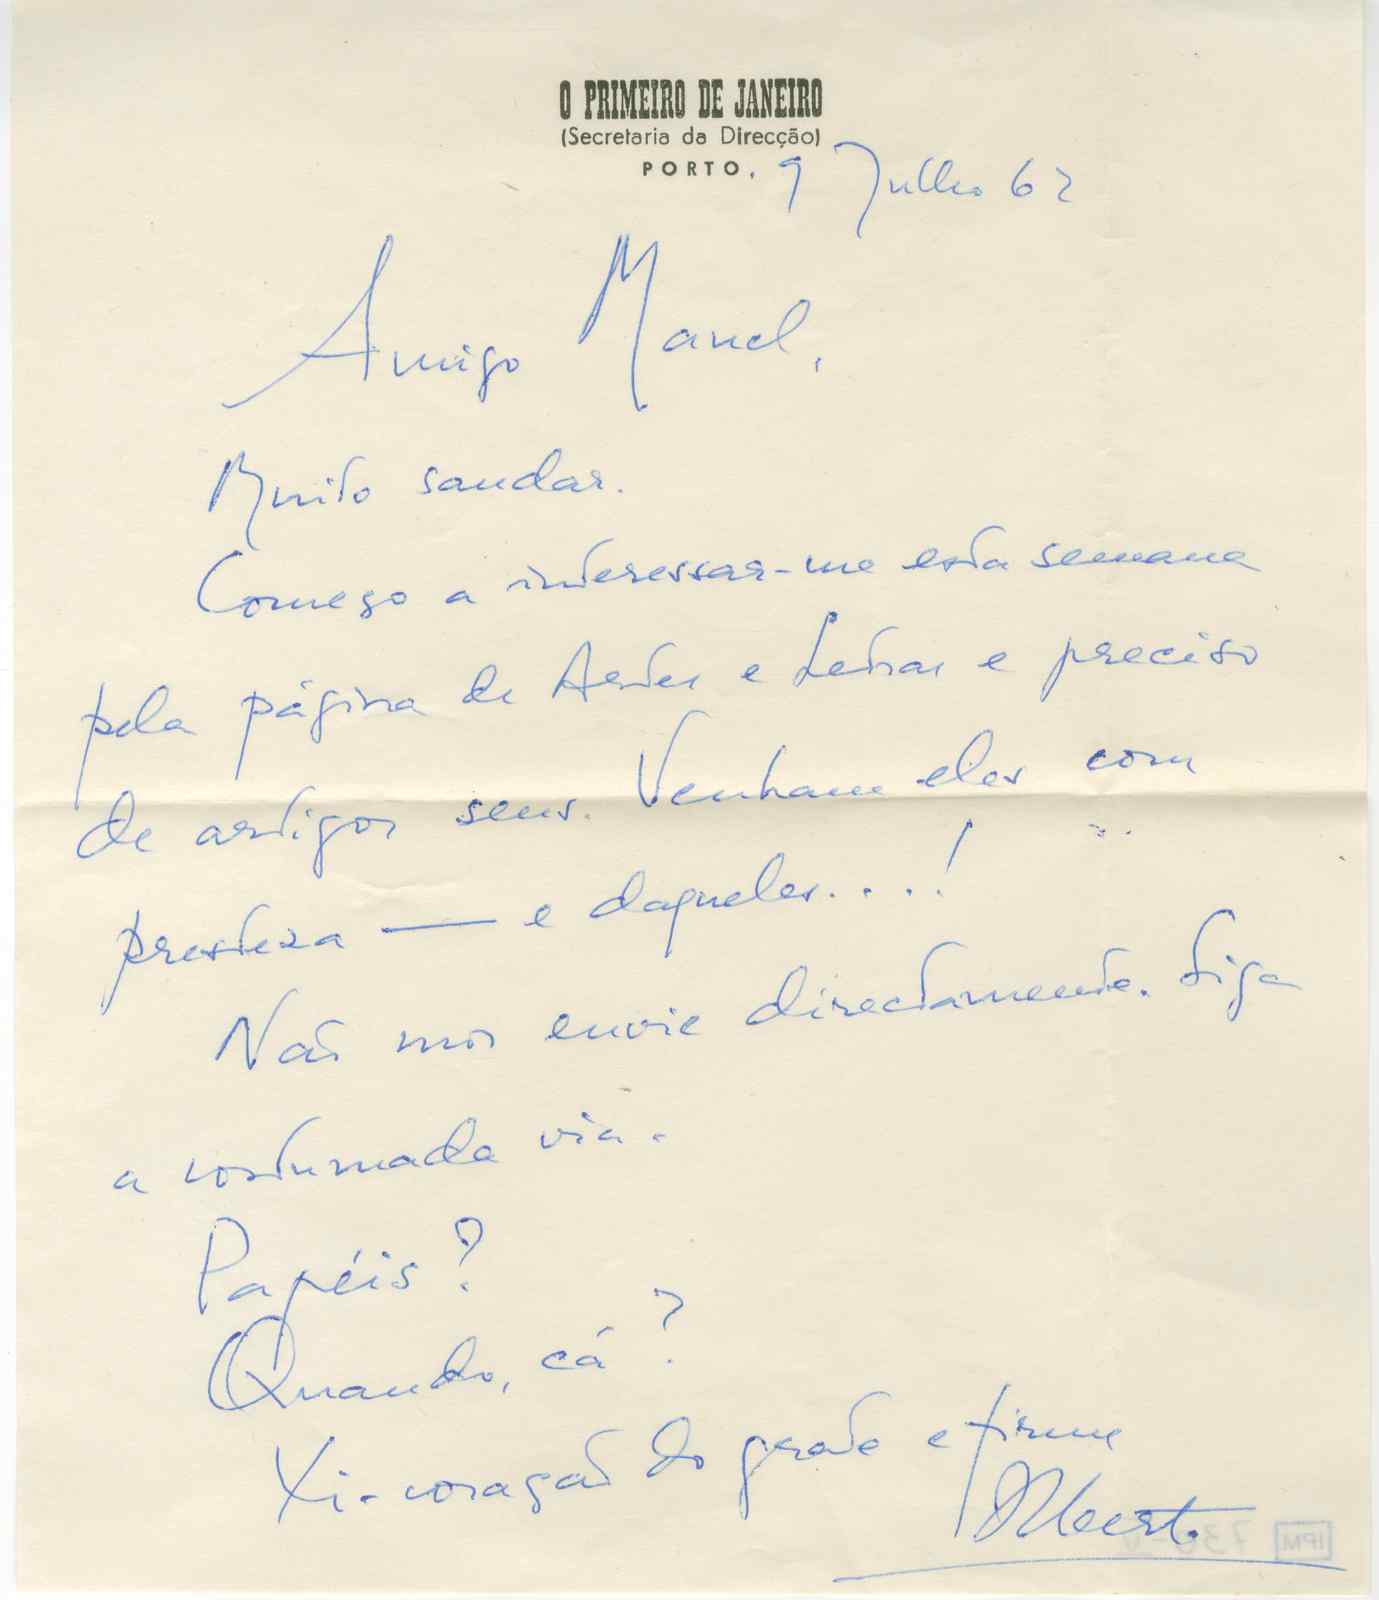 O PRIMEIRO DE JANEIRO
(Secretaria da Direcção)
PORTO, 9 Julho 62
Amigo Manel,
Muito saudar.
Começo a interessar-me esta semana
pela página de Artes e Letras e preciso
de artigos seus. Venham eles com
presteza — e daqueles....!
Não mos envie directamente. Siga
a costumada via.
Papéis?
Quando, cá?
Xi-coração do grato e firme
Albert.
IPM 730-V